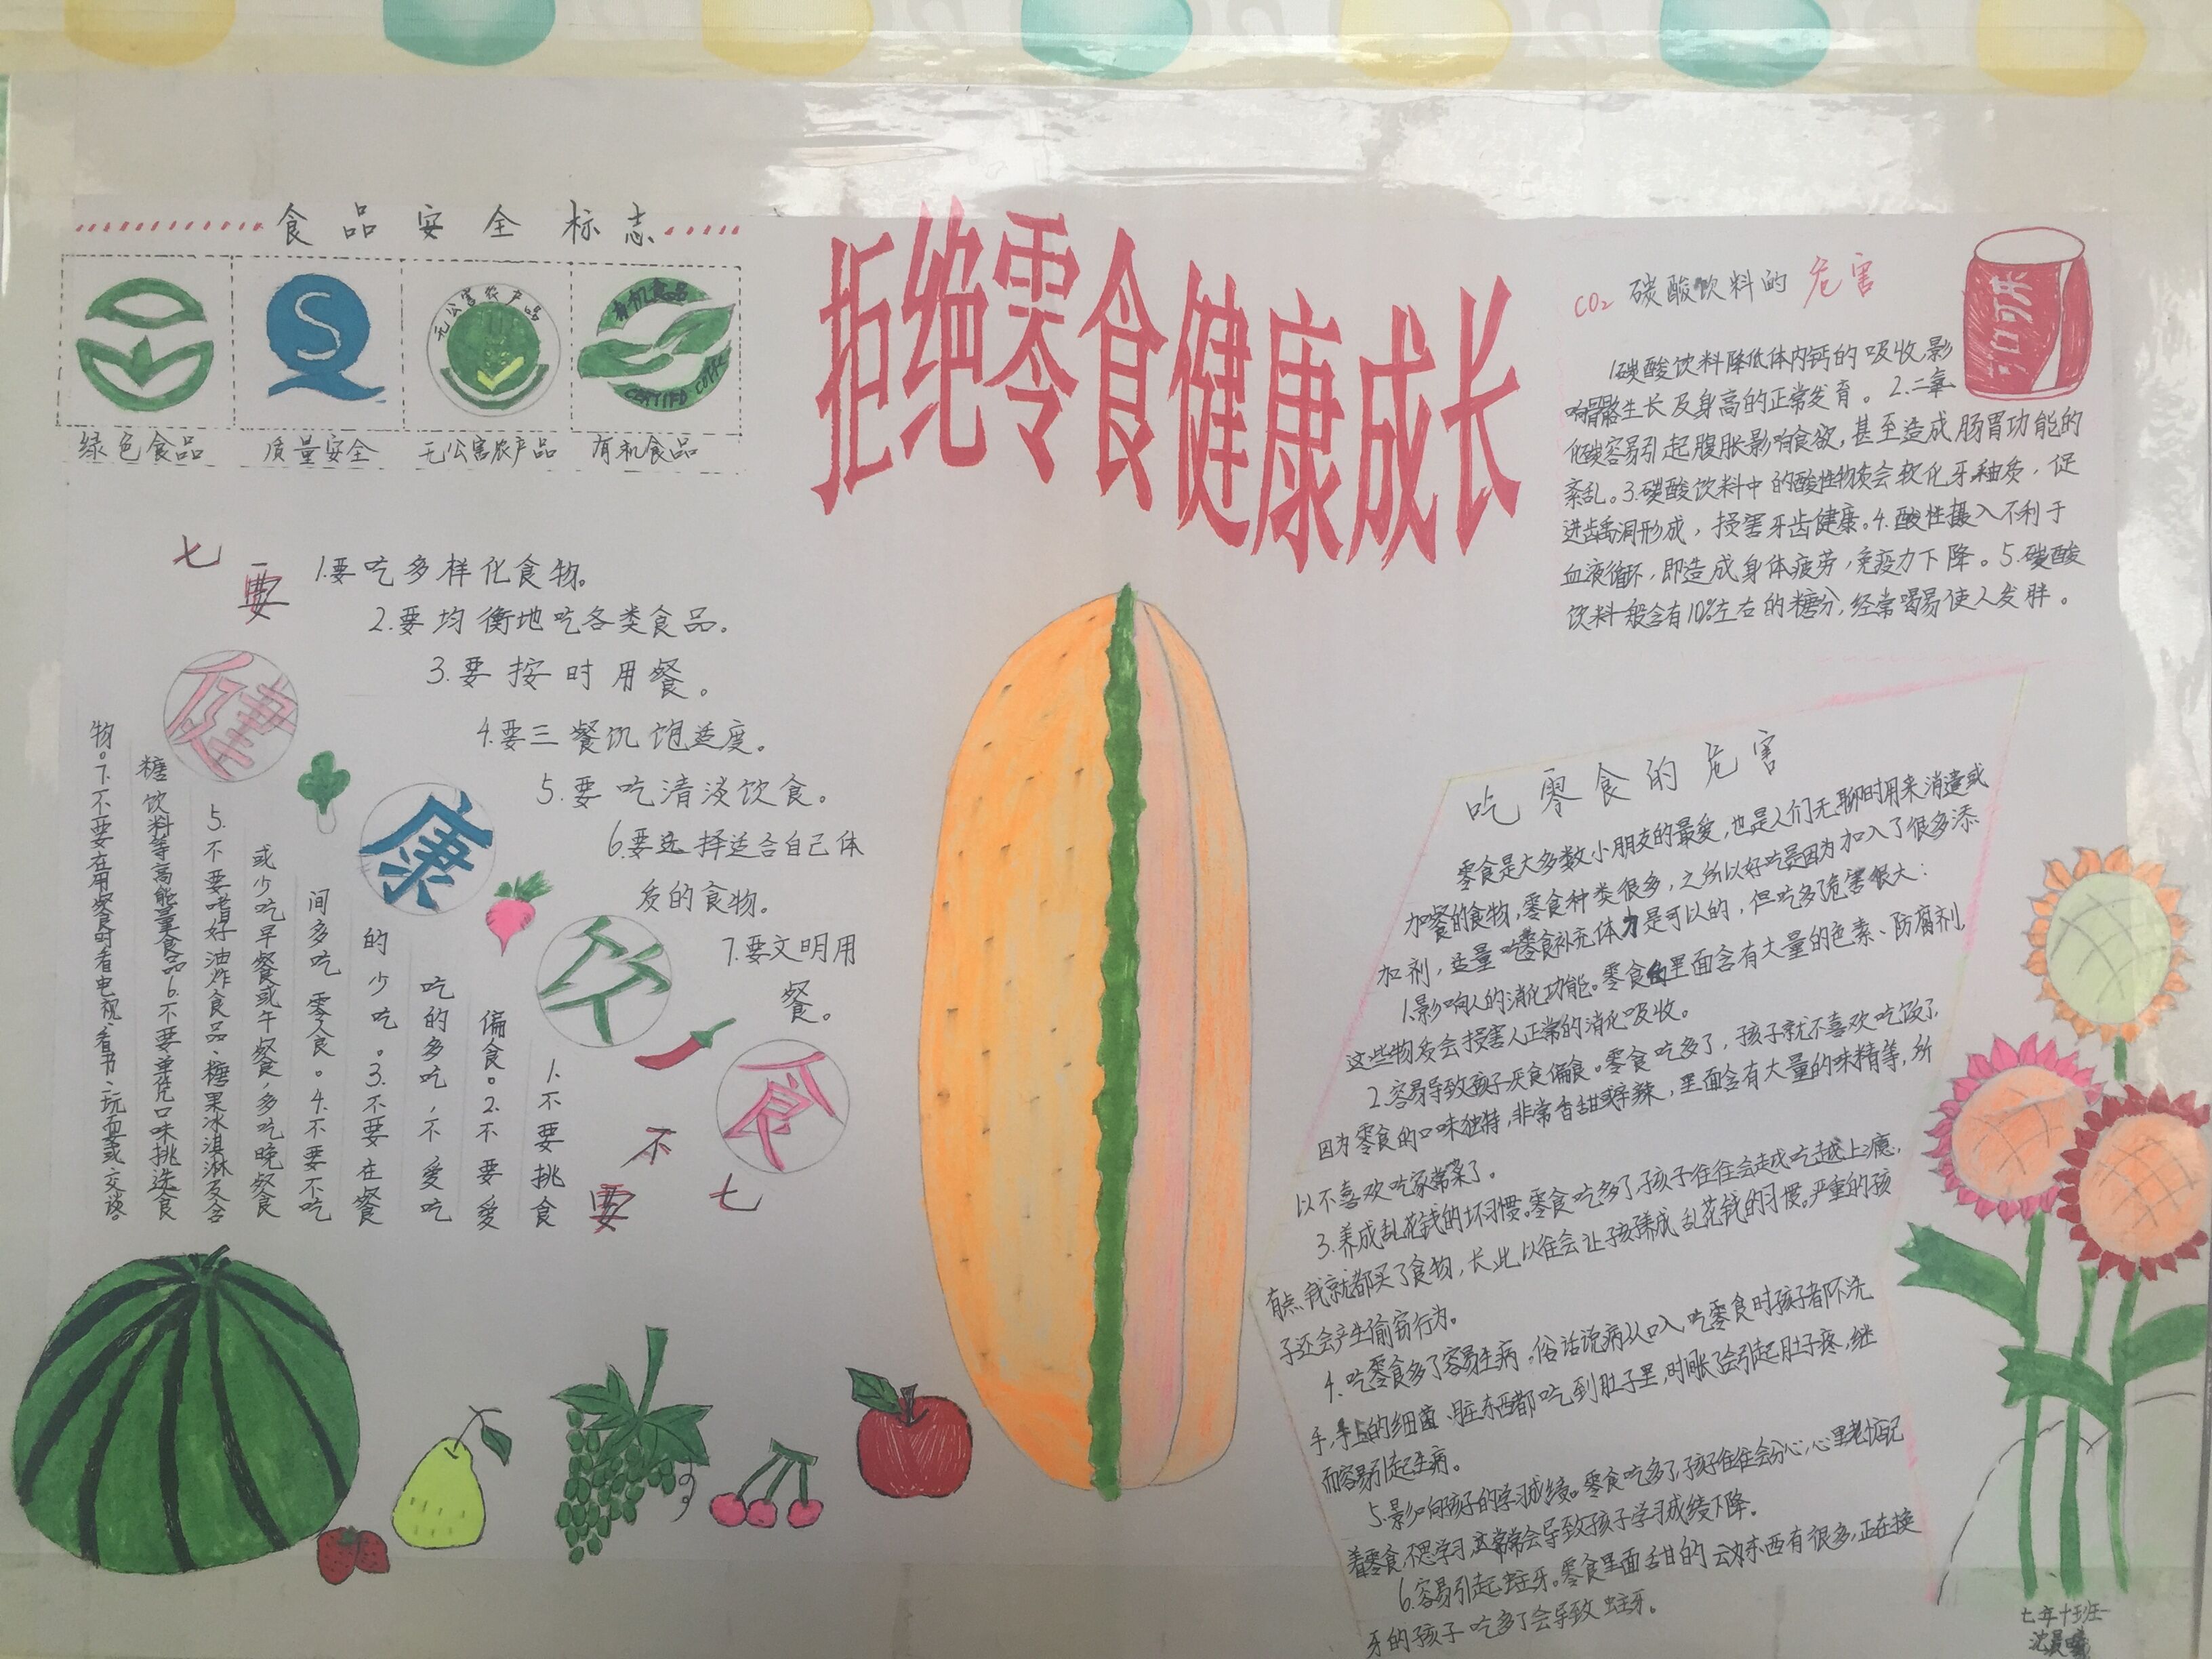 食品安全标志
无公害农产品
有机食品
绿色食品
质量安全
无公害农产品
有机食品
拒绝零食健康成长
CO₂ 碳酸饮料的 危害
可口可乐
1.碳酸饮料降低体内钙的吸收,影
响骨骼生长及身高的正常发育。2.二氧
化碳容易引起腹胀影响食欲,甚至造成肠胃功能的
紊乱。3.碳酸饮料中的酸性物质会软化牙釉质,促
进龋洞形成,损害牙齿健康。4.酸性摄入不利于
血液循环,即造成身体疲劳,免疫力下降。5.碳酸
饮料一般含有10%左右的糖分,经常喝易使人发胖。
七要
1.要吃多样化食物。
2.要均衡地吃各类食品。
3.要按时用餐。
4.要三餐饥饱适度。
5.要吃清淡饮食。
6.要选择适合自己体
质的食物。
7.要文明用
餐。
健
康
饮
食
七不要
1.不要挑食
偏食。2.不要爱
吃的多吃,不爱吃
的少吃。3.不要在餐
间多吃零食。4.不要不吃
或少吃早餐或午餐,多吃晚餐食
5.不要嗜好油炸食品、糖果冰淇淋及含
糖饮料等高能量食品6.不要单凭口味挑选食
物。7.不要在用餐时看电视、看书、玩耍或交谈。
吃零食的危害
零食是大多数小朋友的最爱,也是人们无聊时用来消遣或
加餐的食物,零食种类很多,之所以好吃是因为加入了很多添
加剂,适量吃零食补充体力是可以的,但吃多危害很大:
1.影响人的消化功能。零食里面含有大量的色素、防腐剂,
这些物质会损害人正常的消化吸收。
2.容易导致孩子厌食偏食。零食吃多了,孩子就不喜欢吃饭了,
因为零食的口味独特,非常香甜或辛辣,里面含有大量的味精等,所
以不喜欢吃家常菜了。
3.养成乱花钱的坏习惯。零食吃多了,孩子往往会越吃越上瘾,
有点钱就都买了食物,长此以往会让孩子养成乱花钱的习惯。严重的孩
子还会产生偷窃行为。
4.吃零食多了容易生病。俗话说病从口入,吃零食时孩子都不洗
手,手上的细菌、脏东西都吃到肚子里,时间长了会引起肚子疼,继
而容易引起生病。
5.影响孩子的学习成绩。零食吃多了,孩子往往会分心,心里老惦记
着零食,不思学习,这常常会导致孩子学习成绩下降。
6.容易引起蛀牙。零食里面甜的东西有很多,正在换
牙的孩子吃多了会导致蛀牙。
七年十班